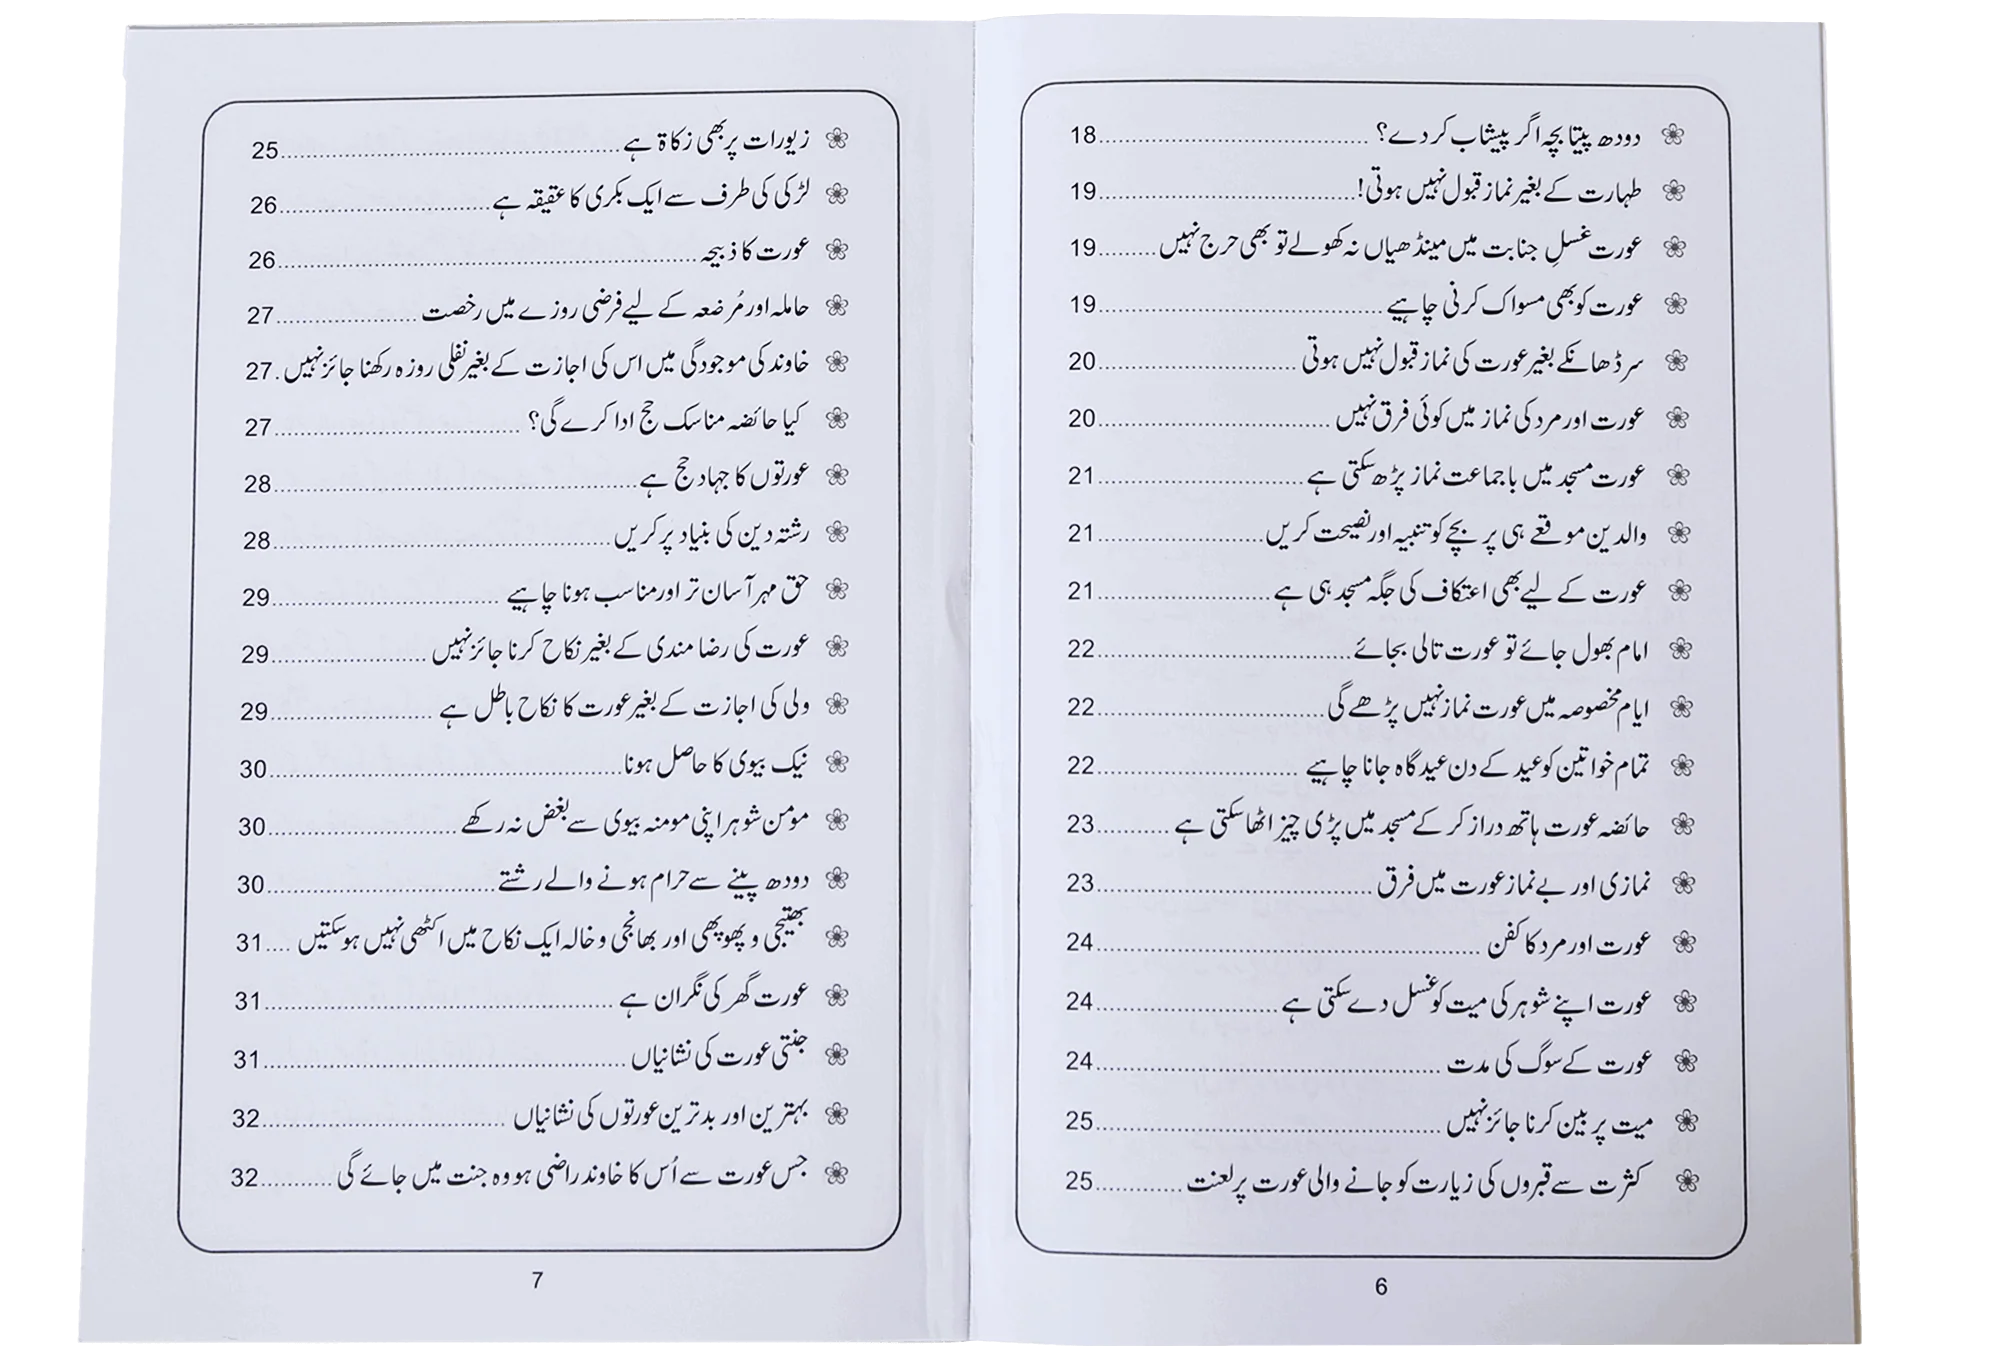 دودھ پیتا بچہ اگر پیشاب کر دے؟ 18
طہارت کے بغیر نماز قبول نہیں ہوتی! 19
عورت غسلِ جنابت میں مینڈھیاں نہ کھولے تو بھی حرج نہیں 19
عورت کو بھی مسواک کرنی چاہیے 19
سر ڈھانکے بغیر عورت کی نماز قبول نہیں ہوتی 20
عورت اور مرد کی نماز میں کوئی فرق نہیں 20
عورت مسجد میں باجماعت نماز پڑھ سکتی ہے 21
والدین موقعے ہی پر بچے کو تنبیہ اور نصیحت کریں 21
عورت کے لیے بھی اعتکاف کی جگہ مسجد ہی ہے 21
امام بھول جائے تو عورت تالی بجائے 22
ایام مخصوصہ میں عورت نماز نہیں پڑھے گی 22
تمام خواتین کو عید کے دن عید گاہ جانا چاہیے 22
حائضہ عورت ہاتھ دراز کر کے مسجد میں پڑی چیز اٹھا سکتی ہے 23
نمازی اور بے نماز عورت میں فرق 23
عورت اور مرد کا کفن 24
عورت اپنے شوہر کی میت کو غسل دے سکتی ہے 24
عورت کے سوگ کی مدت 24
میت پر بین کرنا جائز نہیں 25
کثرت سے قبروں کی زیارت کو جانے والی عورت پر لعنت 25
6
زیورات پر بھی زکاۃ ہے 25
لڑکی کی طرف سے ایک بکری کا عقیقہ ہے 26
عورت کا ذبیحہ 26
حاملہ اور مُرضعہ کے لیے فرضی روزے میں رخصت 27
خاوند کی موجودگی میں اس کی اجازت کے بغیر نفلی روزہ رکھنا جائز نہیں 27
کیا حائضہ مناسک حج ادا کرے گی؟ 27
عورتوں کا جہاد حج ہے 28
رشتہ دین کی بنیاد پر کریں 28
حق مہر آسان تر اور مناسب ہونا چاہیے 29
عورت کی رضا مندی کے بغیر نکاح کرنا جائز نہیں 29
ولی کی اجازت کے بغیر عورت کا نکاح باطل ہے 29
نیک بیوی کا حاصل ہونا 30
مؤمن شوہر اپنی مومنہ بیوی سے بغض نہ رکھے 30
دودھ پینے سے حرام ہونے والے رشتے 30
بھتیجی و پھوپھی اور بھانجی و خالہ ایک نکاح میں اکٹھی نہیں ہو سکتیں 31
عورت گھر کی نگران ہے 31
جنتی عورت کی نشانیاں 31
بہترین اور بدترین عورتوں کی نشانیاں 32
جس عورت سے اُس کا خاوند راضی ہو وہ جنت میں جائے گی 32
7